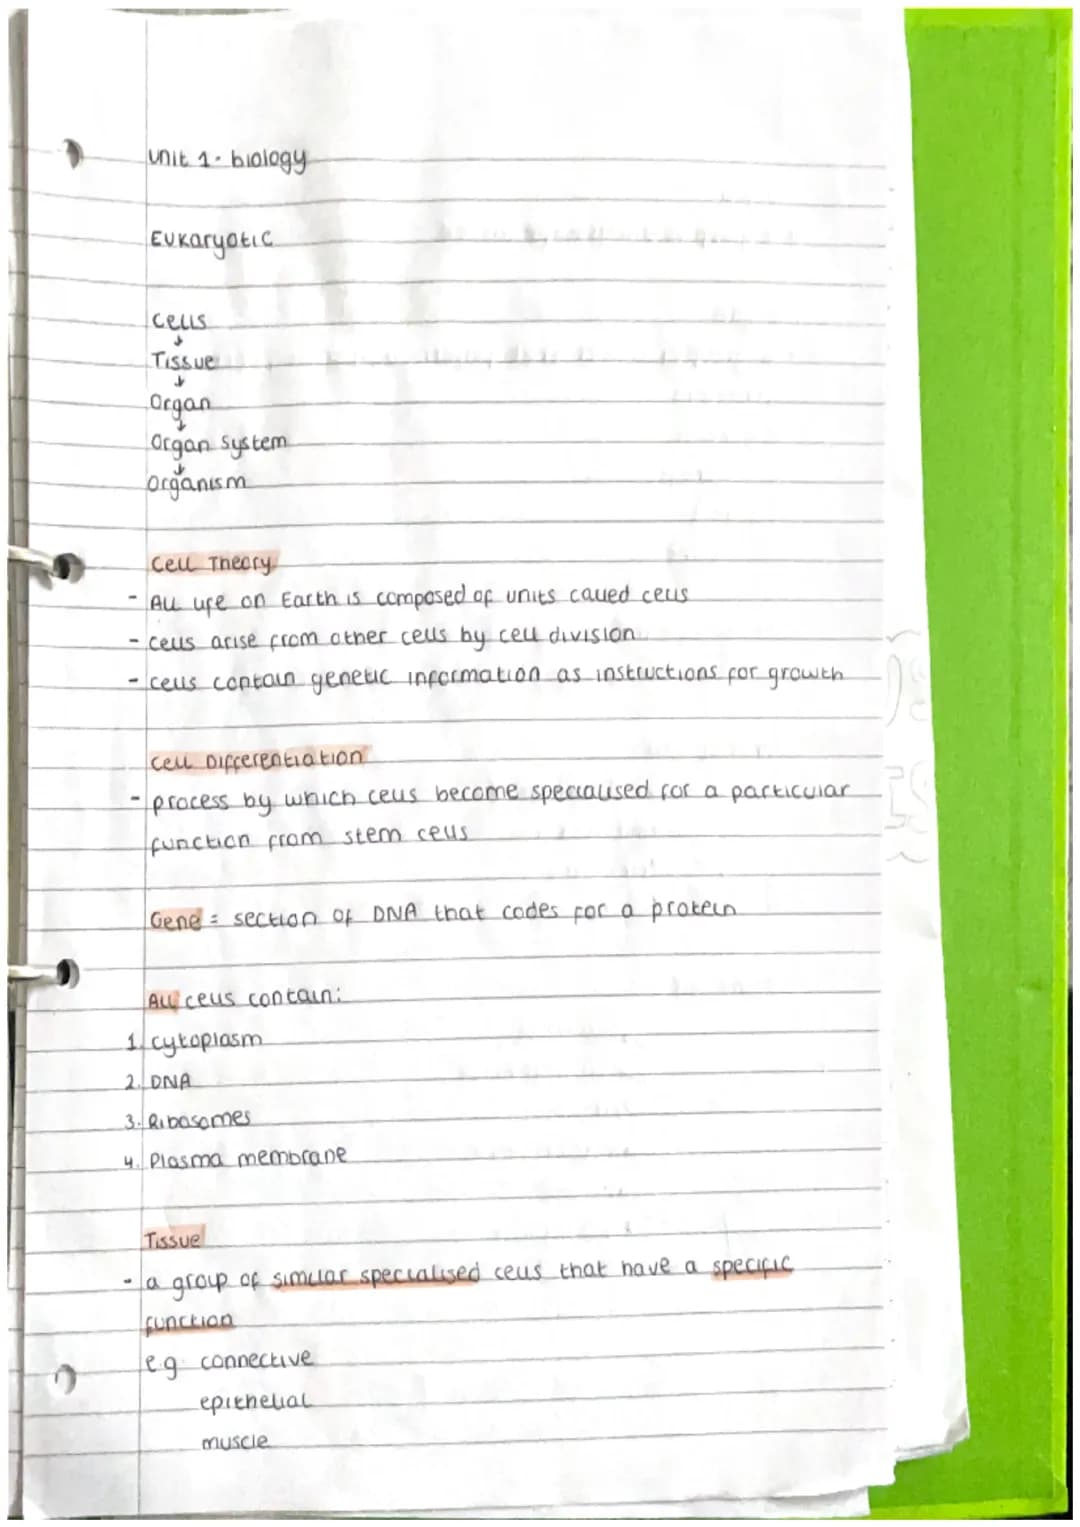 unit 1 - biology
Eukaryotic
cells
↓
Tissue
↓
Organ
↓
Organ System
↓
organism
Cell Theory
- All life on Earth is composed of units called cells
- cells arise from other cells by cell division
- cells contain genetic information as instructions for growth
cell Differentiation
- process by which cells become specialised for a particular
function from stem cells
Gene = section of DNA that codes for a protein
All cells contain:
1. cytoplasm
2. DNA
3. Ribosomes
4. Plasma membrane
Tissue
- a group of similar specialised cells that have a specific
function
eg connective
epithelial
muscle